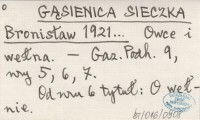 GĄSIENICA SIECZKA
Bronisław 1921... Owce i
wełna. — Gaz. Podh. 9,
nry 5, 6, 7.
Od nru 6 tytuł: O weł-
nie.